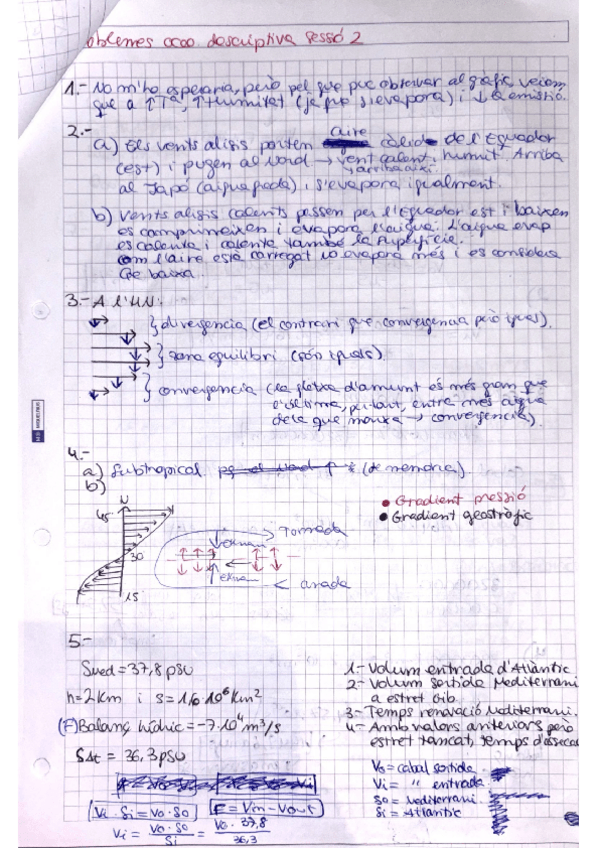 oblemes ocea descriptiva sessió 2
1.- No m'ho esperaria, però pel que puc observar al gràfic veiem
que a ↑Tª, ↑Humitat (ja que s'evapora) i ↓Q emissió.
2.-
a) Els vents alisis porten l'aire càlid de l'Equador
(est) i pugen al Nord → vent calent, humit. Arriba
y arriba així
al Japó (aigua freda) i s'evapora igualment.
b) Vents alisis calents passen per l'Equador est i baixen
es comprimeixen i evapora l'aigua. L'aigua evap
es calenta i calenta també la superfície.
Com l'aire està carregat no evapora més i es considera
de baixa.
3.- A l'HN:
} divergència (el contrari que convergència però igual).
} zona equilibri (són iguals).
} convergència (la fletxa d'amunt és més gran que
l'última, per tant, entra més aigua
de la que marxa → convergència).
4.-
a) Subtropical (de memòria).
b)
N
45
30
15
Ekman
Tornada
Ekman
anada
• Gradient pressió
• Gradient geostròfic
5.-
Smed = 37,8 psu
h = 2 Km i S = 1,6·10⁶ Km²
(F) Balanç hídric = -7·10⁴ m³/s
SAt = 36,3 psu
Vi · Si = Vo · So
F = Vin - Vout
Vi = Vo · So / Si = Vo · 37,8 / 36,3
1.- Volum entrada d'Atlàntic
2- Volum sortida Mediterrani
a estret Gib
3- Temps renovació Mediterrani.
4- Amb valors anteriors però
estret tancat, temps d'asseca
Vo = cabal sortida
Vi = " entrada
So = Mediterrani
Si = Atlàntic